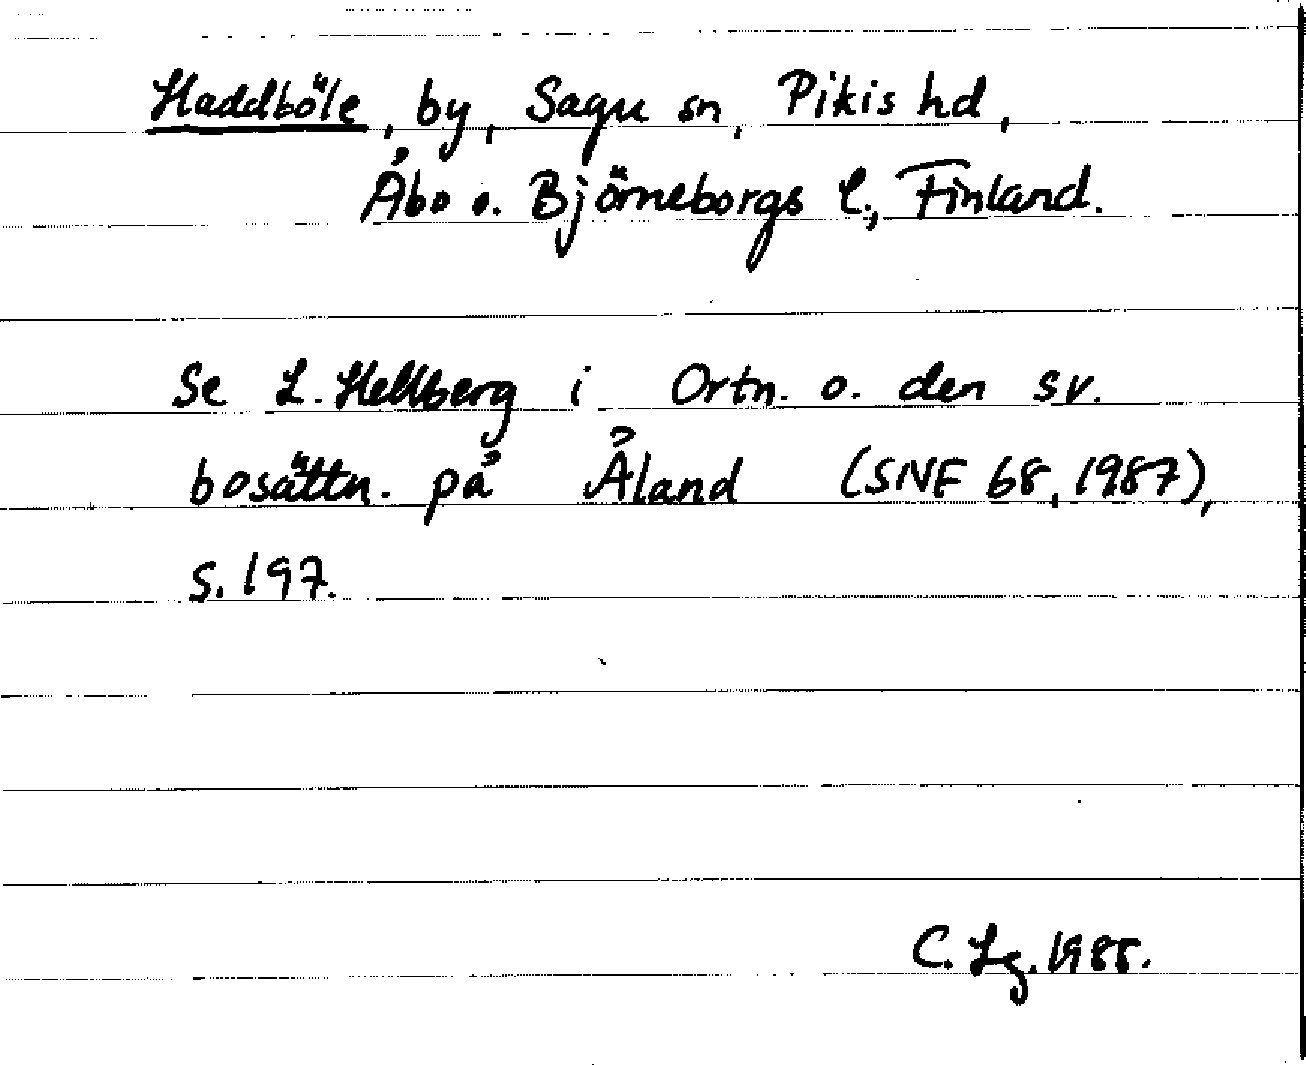 Haddböle, by, Sagu sn, Pikis hd,
Åbo o. Björneborgs l., Finland.
Se L. Hellberg i Ortn. o. den sv.
bosättn. på Åland (SNF 68, 1987),
s. 197.
C. Lg. 1988.